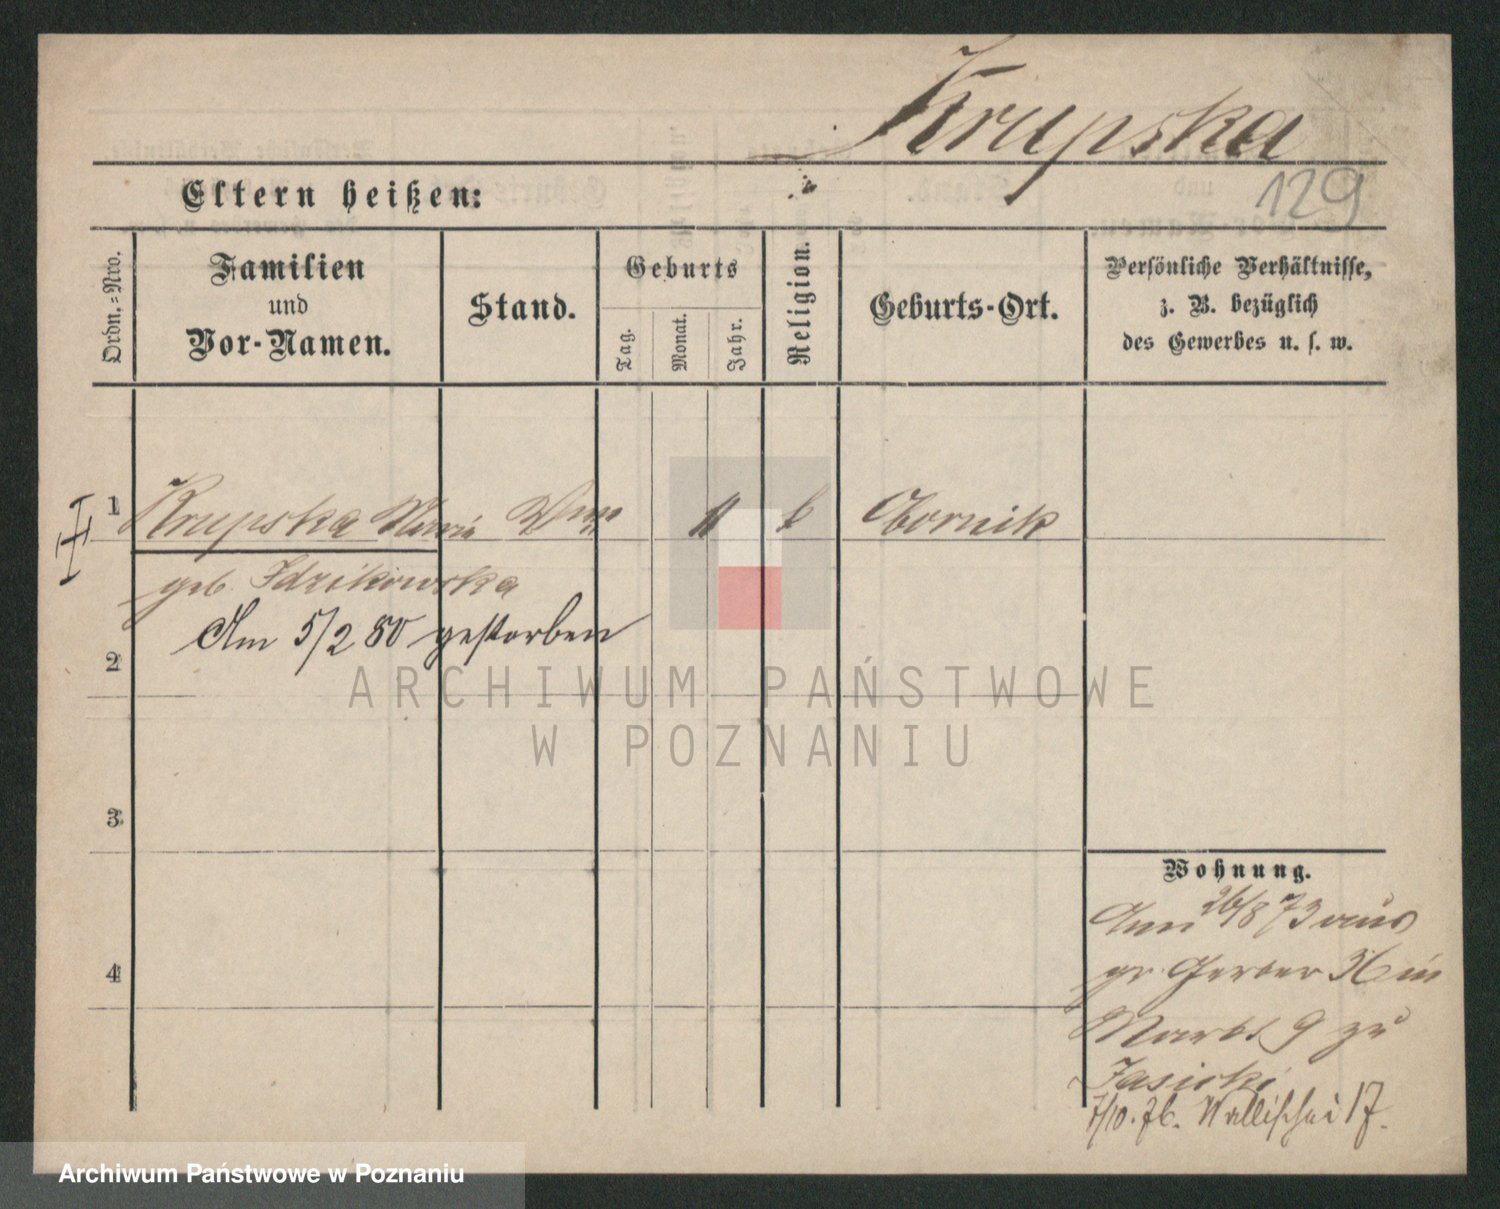 Krupska
129
Eltern heißen:
Ordn.=Nro.
Familien
und
Vor-Namen.
Stand.
Geburts
Tag.
Monat.
Jahr.
Religion.
Geburts-Ort.
Persönliche Verhältnisse,
z. B. bezüglich
des Gewerbes u. s. w.
1 Krupska Maria k Obornik
geb. Idzikowska
Am 5/2 80 gestorben
2
3
4
Wohnung.
Am 26/8 73 aus
gr. Gerber 36 in
Markt 9 zu
Jasicki
7/10. 76. Wallischei 17.
ARCHIWUM PAŃSTWOWE
W POZNANIU
Archiwum Państwowe w Poznaniu